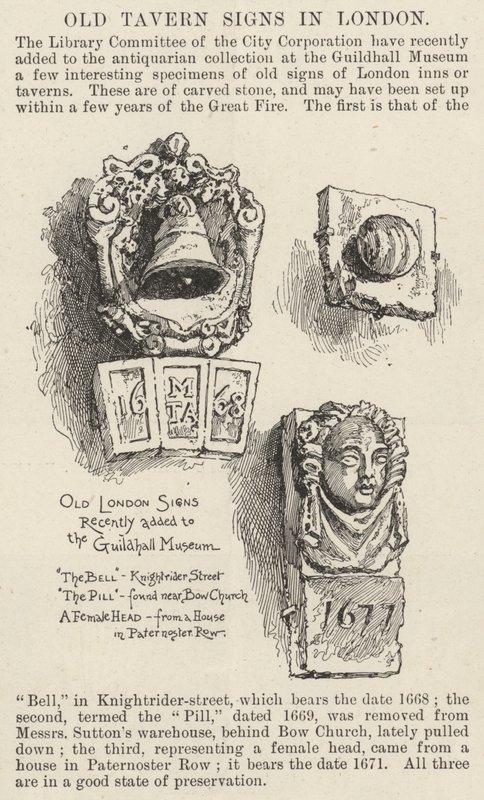 OLD TAVERN SIGNS IN LONDON.
The Library Committee of the City Corporation have recently
added to the antiquarian collection at the Guildhall Museum
a few interesting specimens of old signs of London inns or
taverns. These are of carved stone, and may have been set up
within a few years of the Great Fire. The first is that of the
16 M 68
TA
OLD LONDON SIGNS
Recently added to
the Guildhall Museum
"The BELL" - Knightrider Street
"The PILL" - found near Bow Church
A Female HEAD - from a House
in Paternoster Row.
1671
"Bell," in Knightrider-street, which bears the date 1668 ; the
second, termed the "Pill," dated 1669, was removed from
Messrs. Sutton's warehouse, behind Bow Church, lately pulled
down ; the third, representing a female head, came from a
house in Paternoster Row ; it bears the date 1671. All three
are in a good state of preservation.